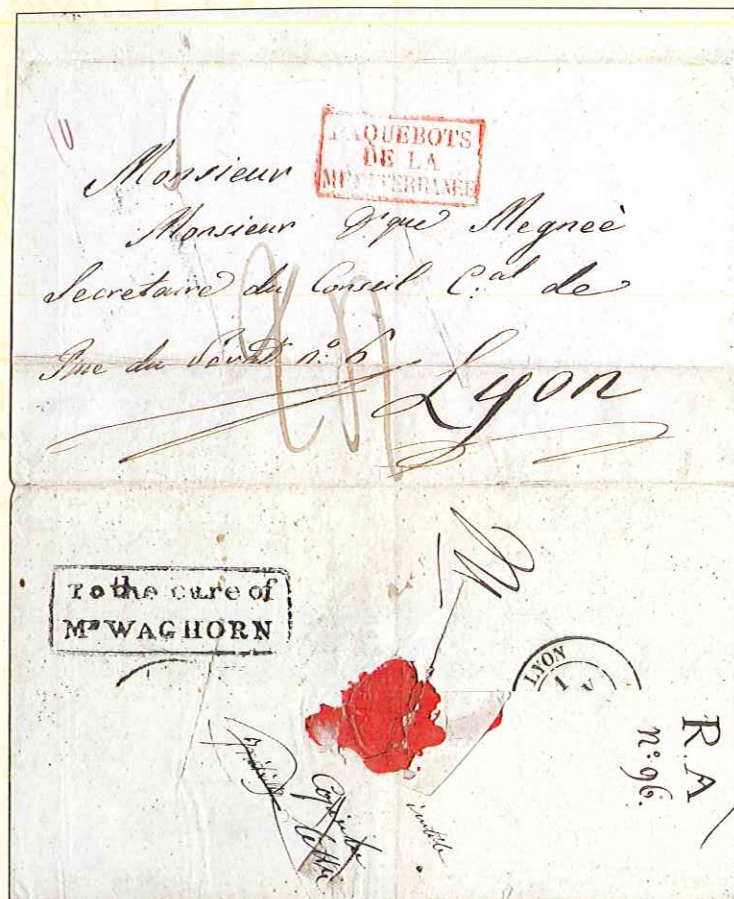 PAQUEBOTS
DE LA
MÉDITERRANÉE
Monsieur
Monsieur D.que Megneè
Secretaire du Conseil C.al de
Rue du n.o 6
Lyon
To the care of
Mr WAGHORN
LYON
R.A
n.o 96.
inutile